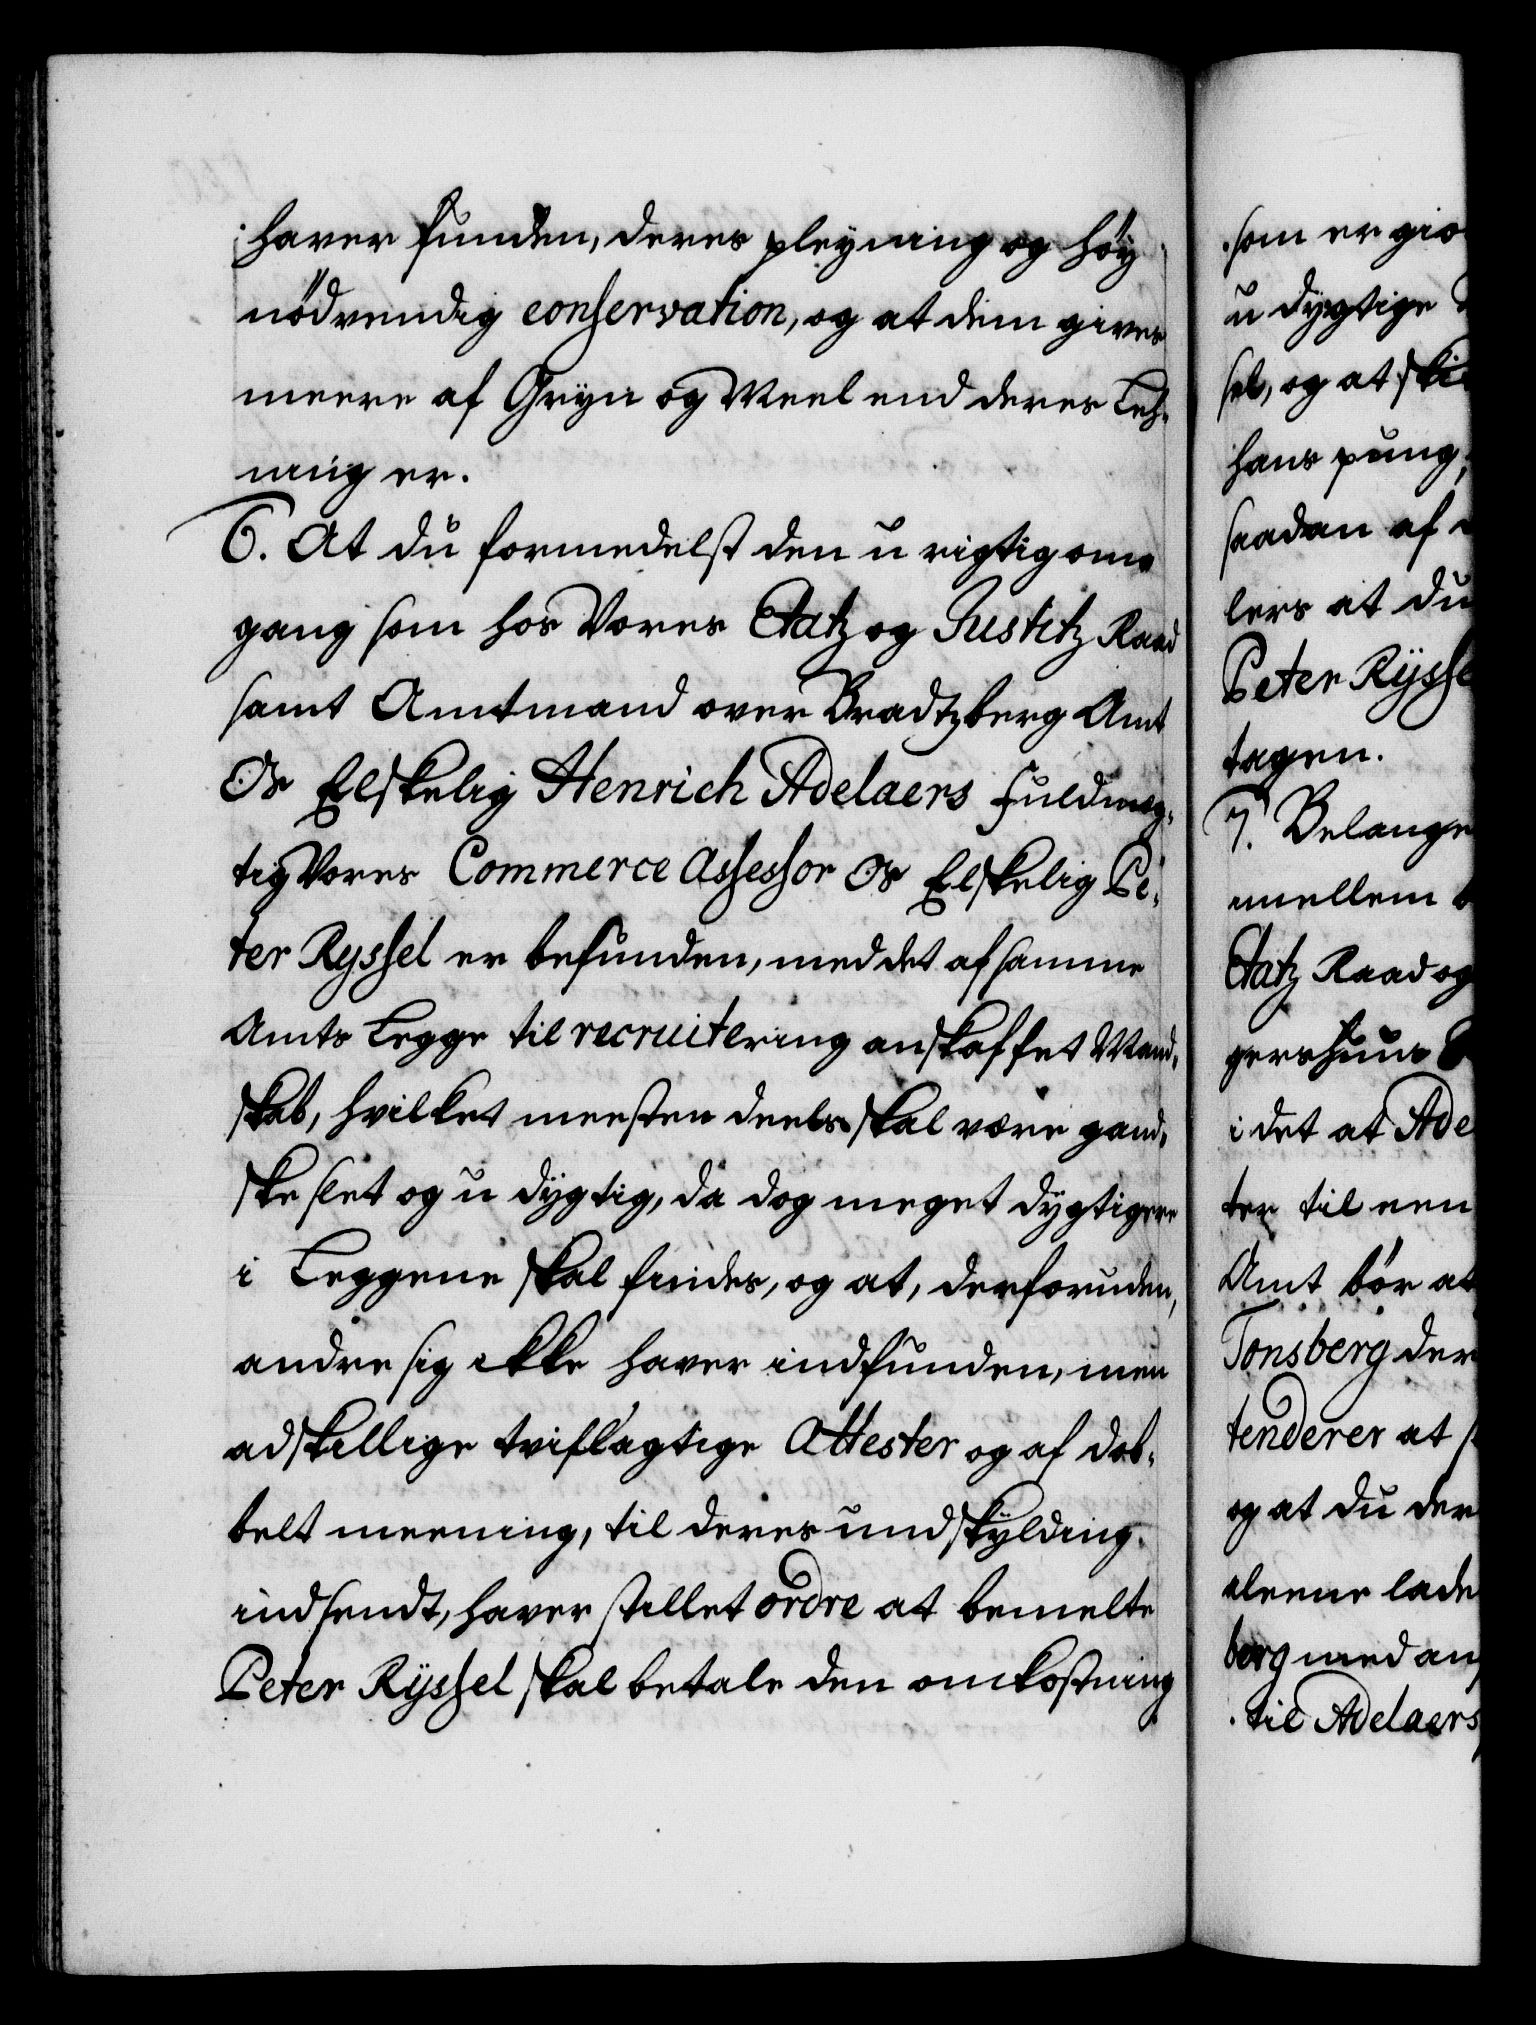 haver funden, deres pleyning og höy
nödvendig conservation, og at dem gives
meere af Gryn og Meel end deres Leh-
ning er.
6. At du formedelst den u rigtig om-
gang som hos Vores Etatz og Justitz Raad
samt Amtmand over Bradtzberg Amt
Os Elskelig Henrich Adelaers Fuldmeg-
tig Vores Commerce Assessor Os Elskelig Pe-
ter Ryssel er befunden, med det af samme
Amts Legge til recruitering anskaffet Mand-
skab, hvilket meesten deels skal være gand-
ske slet og u dygtig, da dog meget dygtigere
i Leggene skal findes, og at, derforuden,
andre sig ikke haver indfunden, men
adskillige tviflagtige Attester og af dob-
belt meening, til deres undskylding
indsendt, haver stillet ordre at bemelte
Peter Rÿssel skal betale den omkostning
som er gio
u dygtige
sel, og at ski
hans pung,
saadan af
lers at du
Peter Rÿsse
tagen.
7. Belange
mellem
Etatz Raad og
gershuus
i det at Ade
ter til een
Amt bör at
Tonsberg der
tenderer at
og at du der
aleene lade
berg med an
til Adelaers